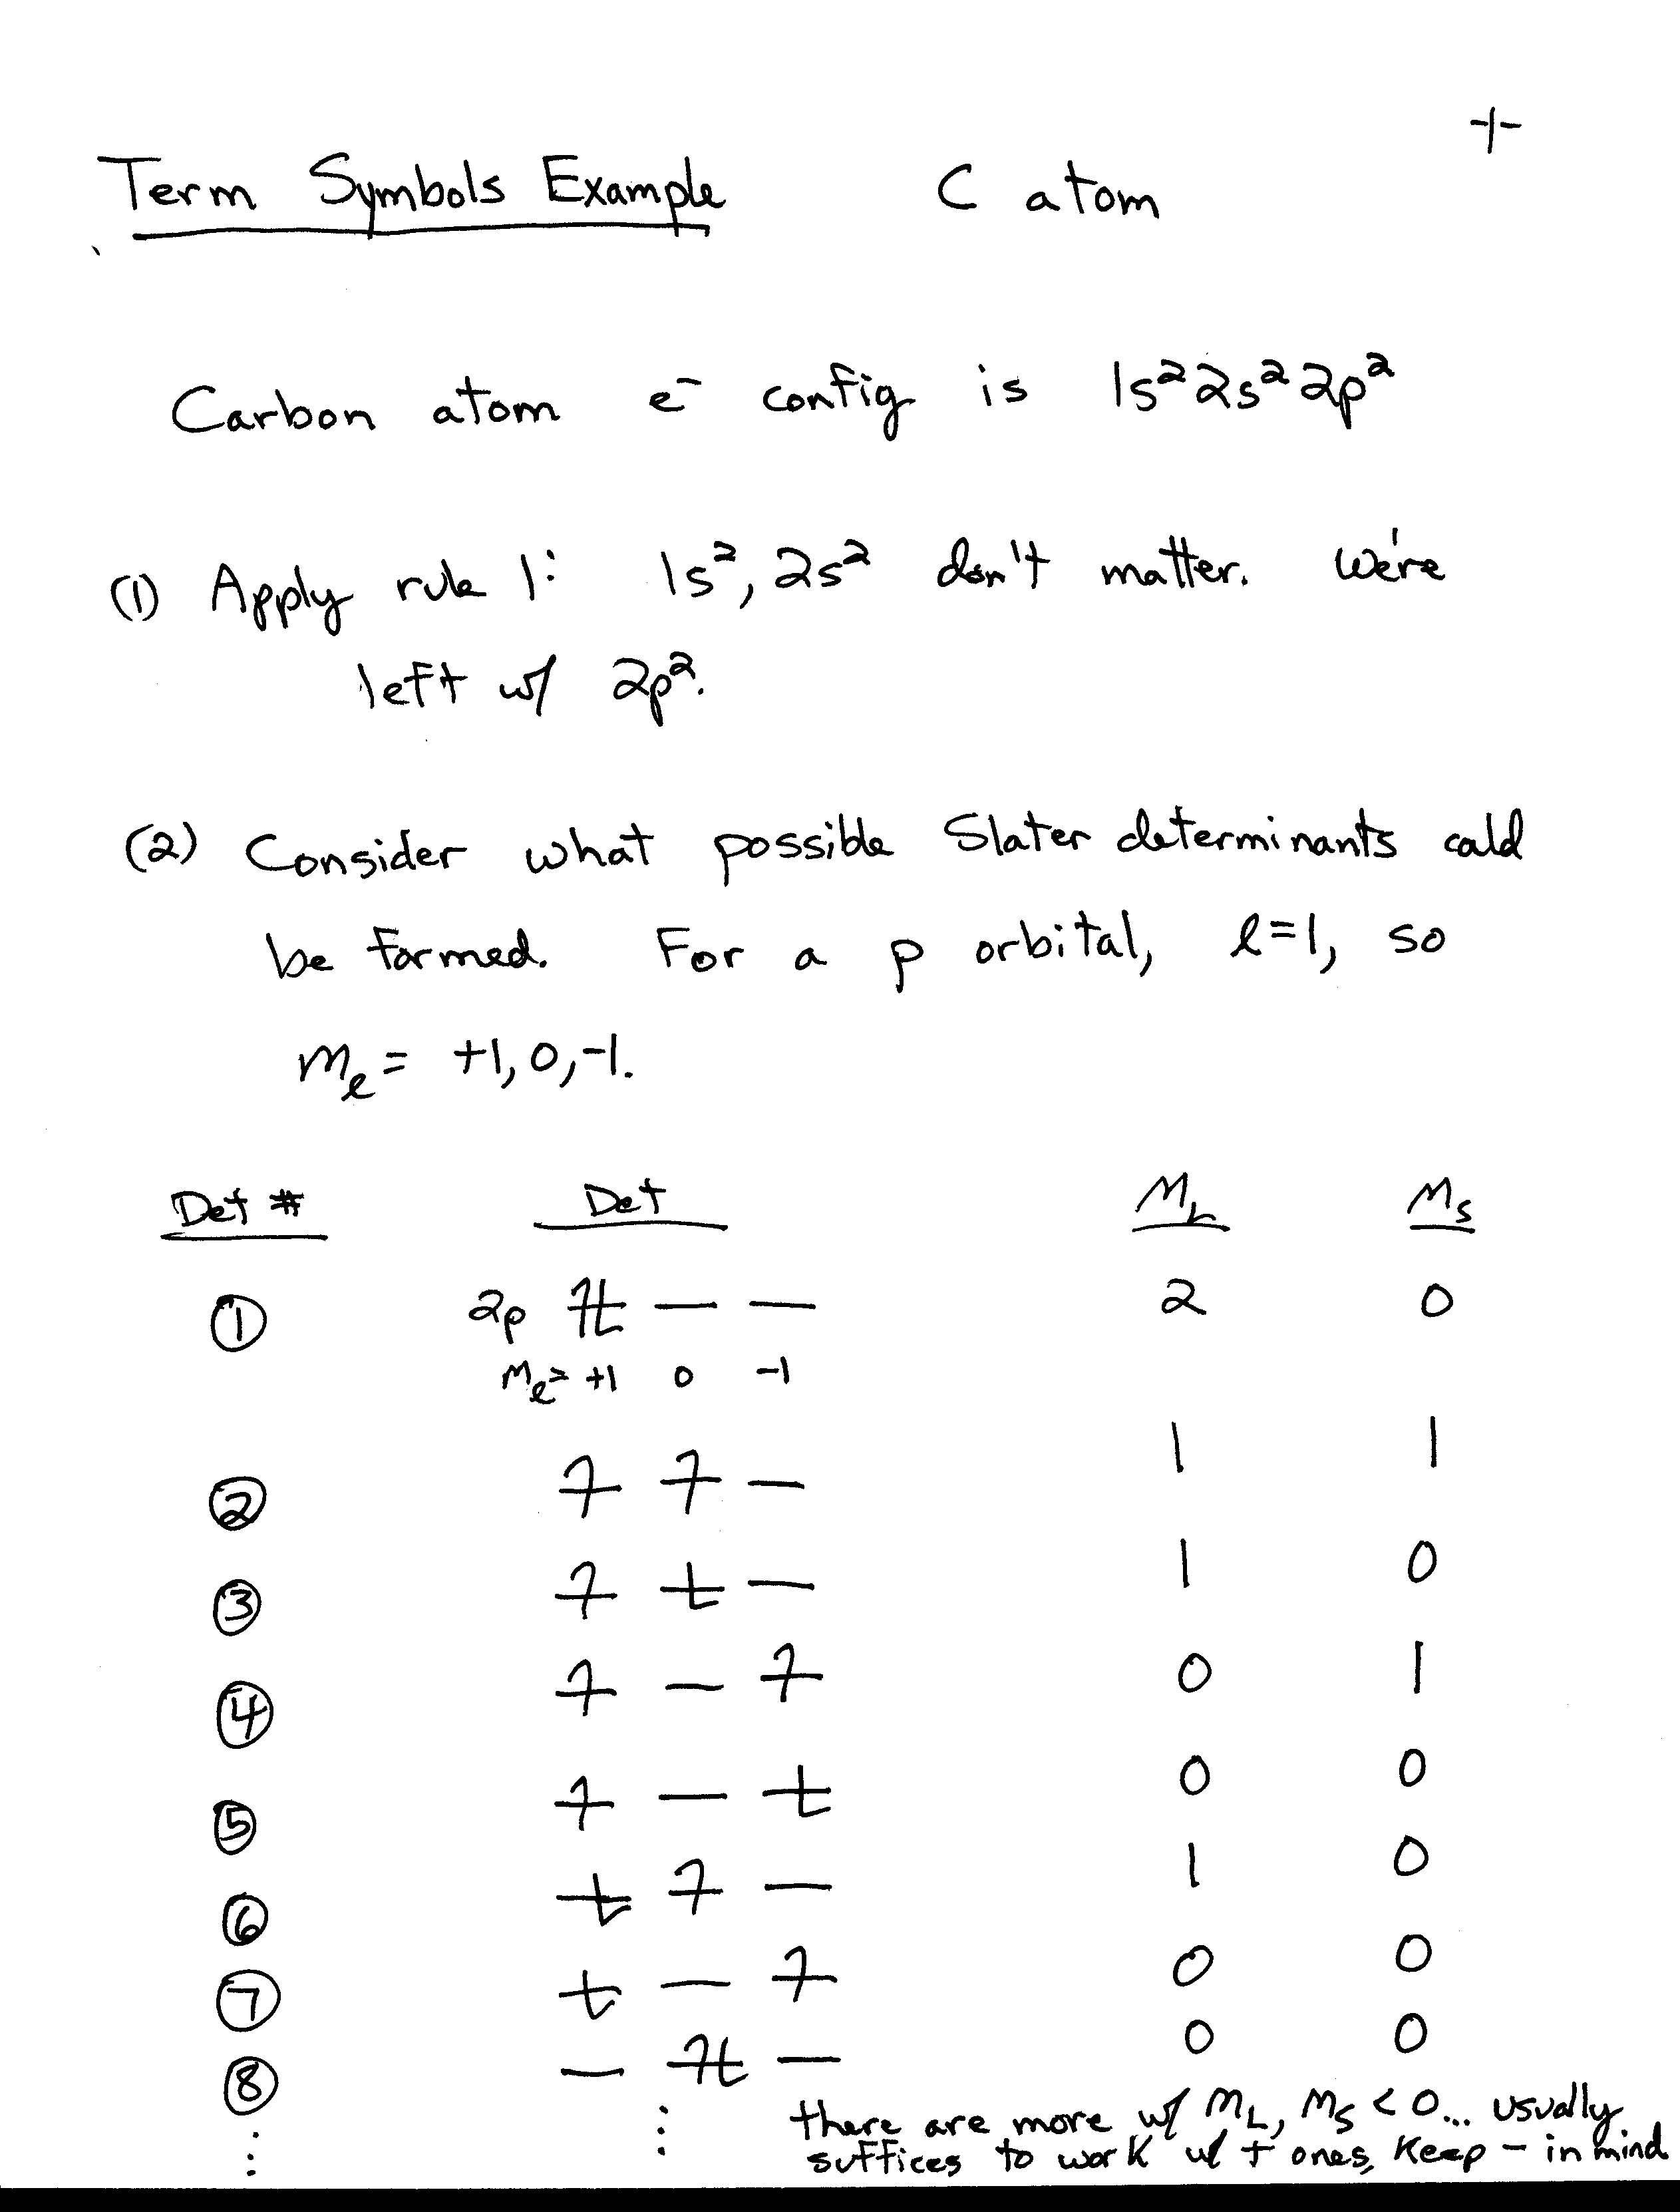 -1-
Term Symbols Example C atom
Carbon atom e⁻ config is 1s²2s²2p²
(1) Apply rule 1: 1s², 2s² don't matter. We're
left w/ 2p².
(2) Consider what possible Slater determinants could
be formed. For a p orbital, ℓ=1, so
mℓ = +1, 0, -1.
Det # Det M_L M_S
① 2p ↿⇂ — — 2 0
mℓ= +1 0 -1
② ↿ ↿ — 1 1
③ ↿ ⇂ — 1 0
④ ↿ — ↿ 0 1
⑤ ↿ — ⇂ 0 0
⑥ ⇂ ↿ — 1 0
⑦ ⇂ — ↿ 0 0
⑧ — ↿⇂ — 0 0
⋮ ⋮ there are more w/ M_L, M_S < 0... usually
suffices to work w/ + ones, keep - in mind